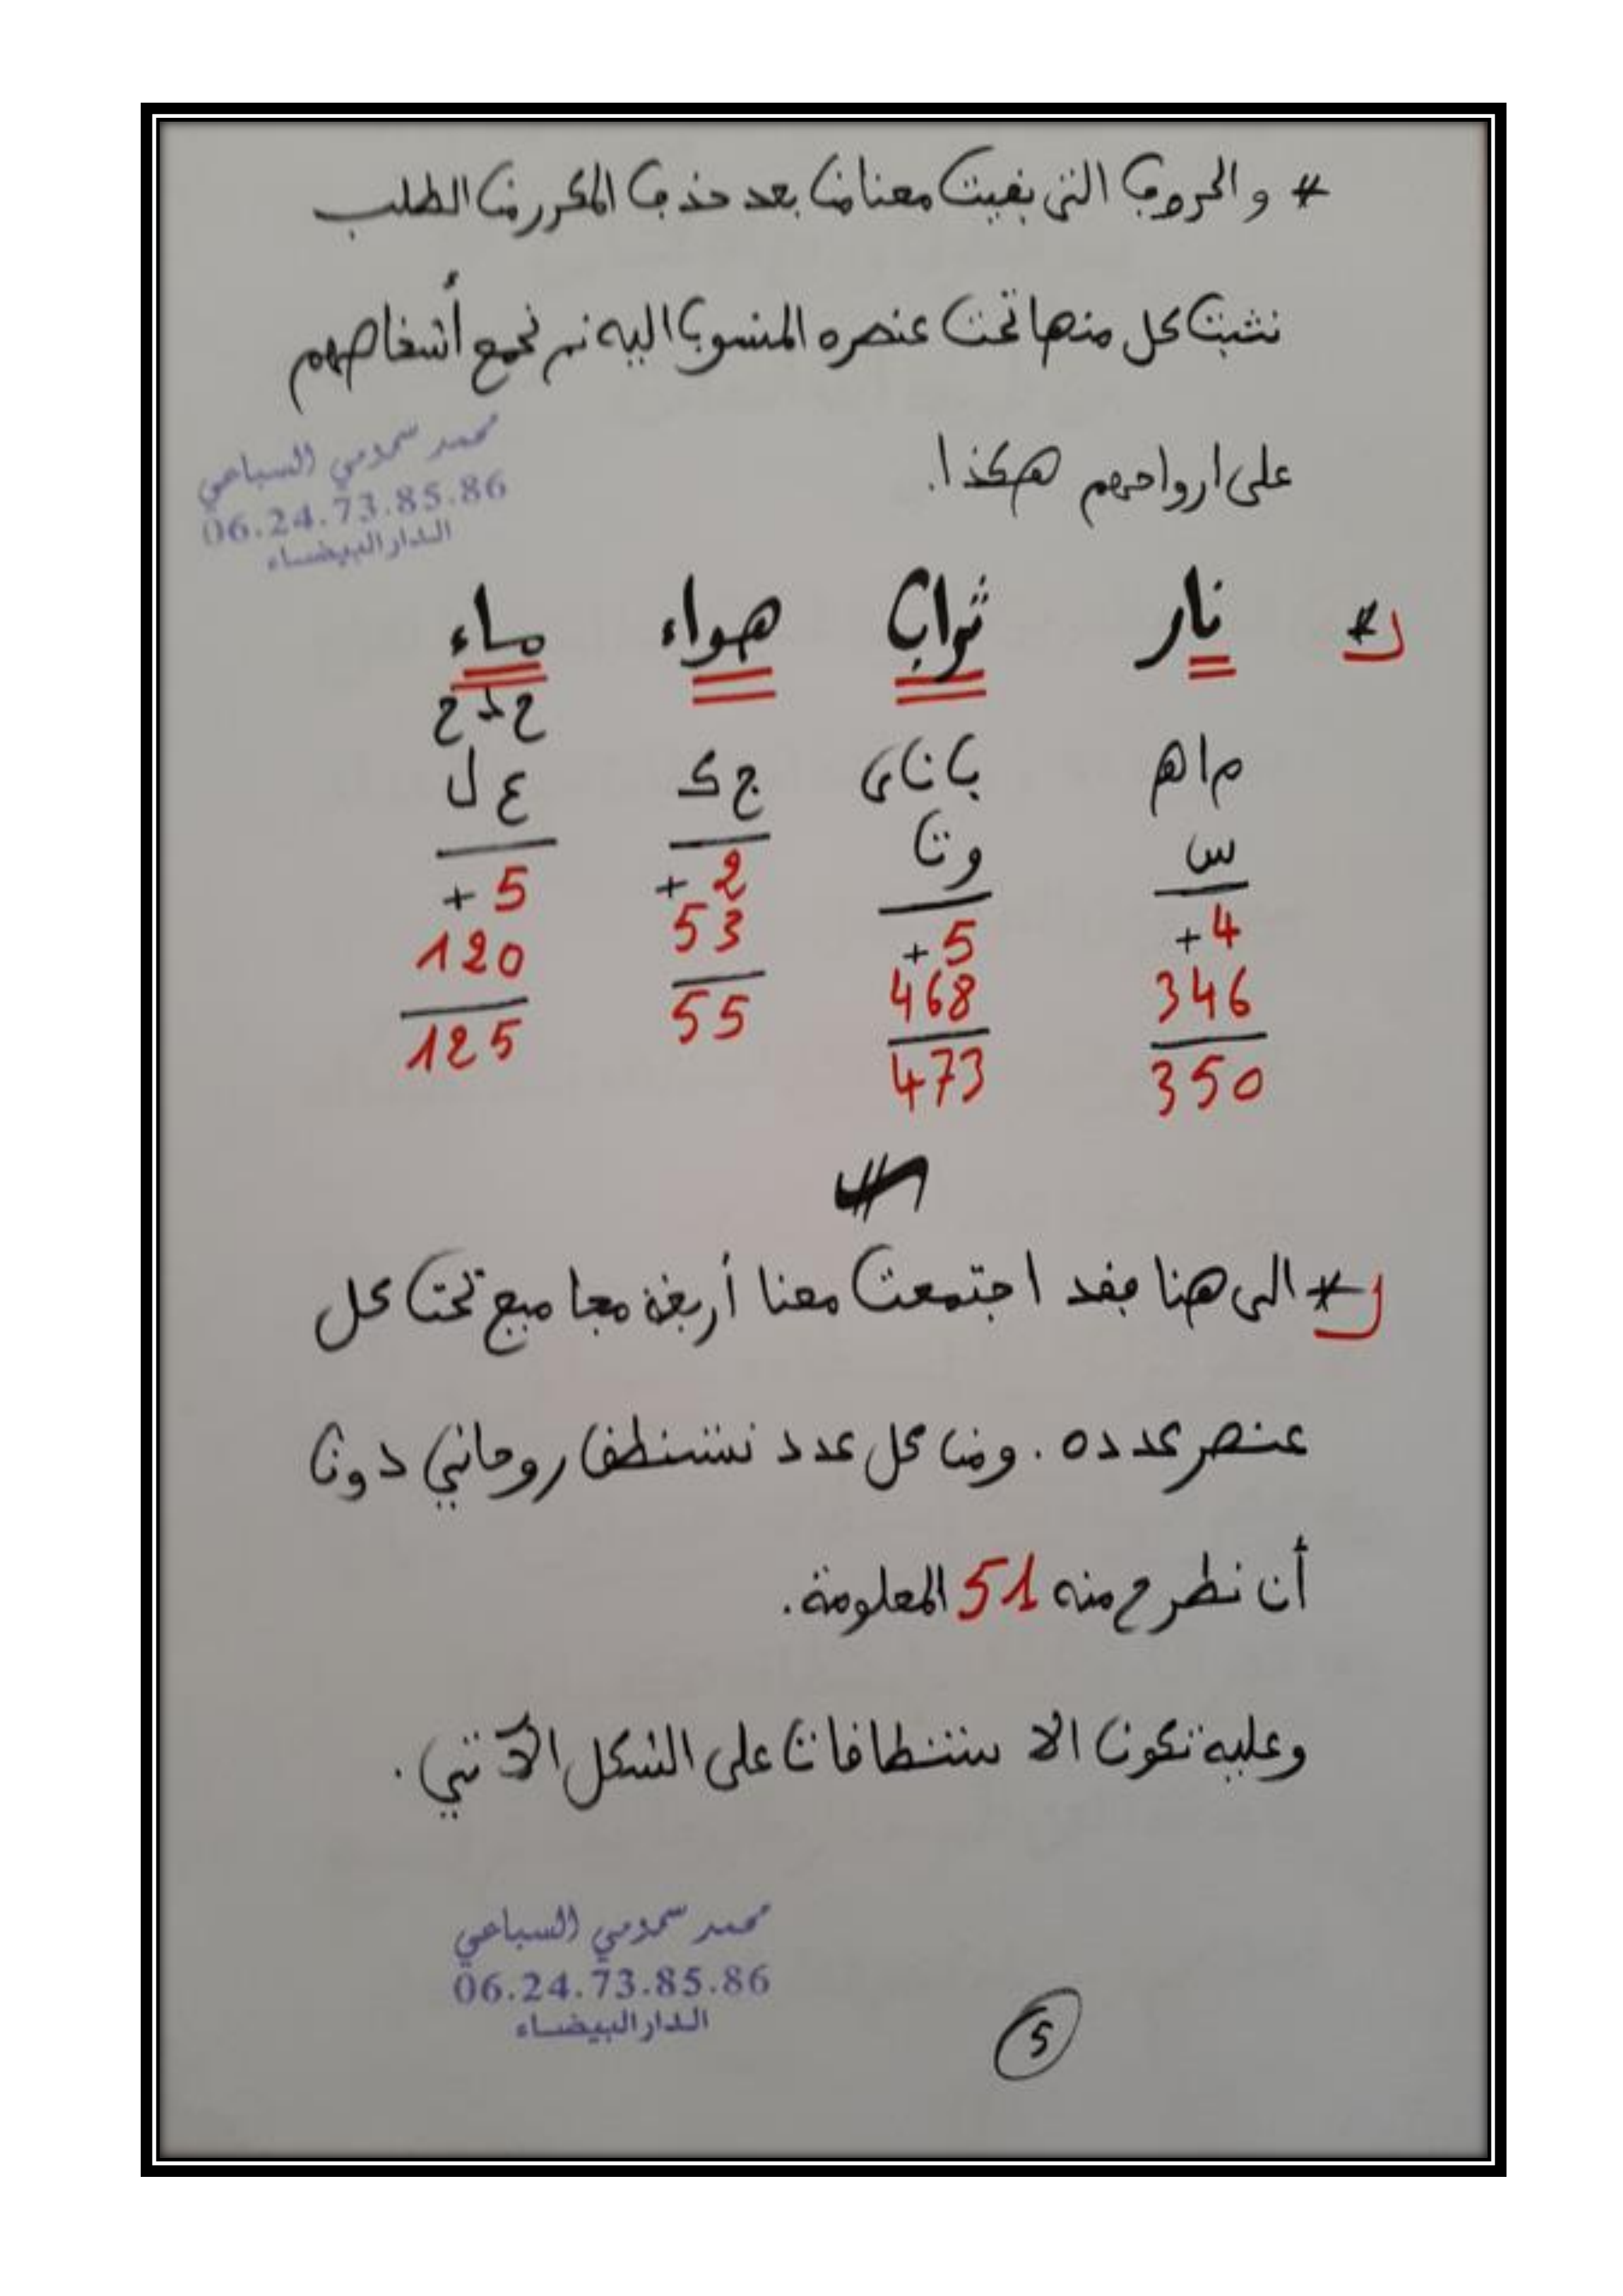 * والحروف التي بقيت معنا من بعد حذف المكرر من الطلب
نثبت كل منها تحت عنصره المنسوب اليه ثم نجمع أشخاصهم
على ارواحهم هكذا.
محمد سمومي السباعي
06.24.73.85.86
الدار البيضاء
* نار ثراب هواء ماء
ح د خ
م ا ه ب ن ي ج ك ع ل
س و ت
+ 4 + 5 + 2 + 5
346 468 53 120
350 473 55 125
* الى هنا فقد اجتمعت معنا أربعة مجاميع تحت كل
عنصر عدده. ومن كل عدد نستنطق روحاني دون
أن نطرح منه 51 المعلومة.
وعليه تكون الاستنطاقات على الشكل الآتي.
محمد سمومي السباعي
06.24.73.85.86
الدار البيضاء
5